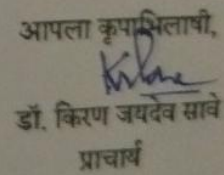 आपला कृपाभिलाषी,
डॉ. किरण जयदेव सावे
प्राचार्य